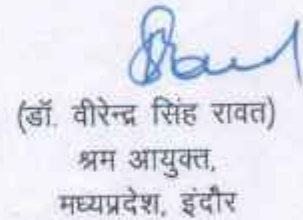 (डॉ. वीरेन्द्र सिंह रावत)
श्रम आयुक्त,
मध्यप्रदेश, इंदौर